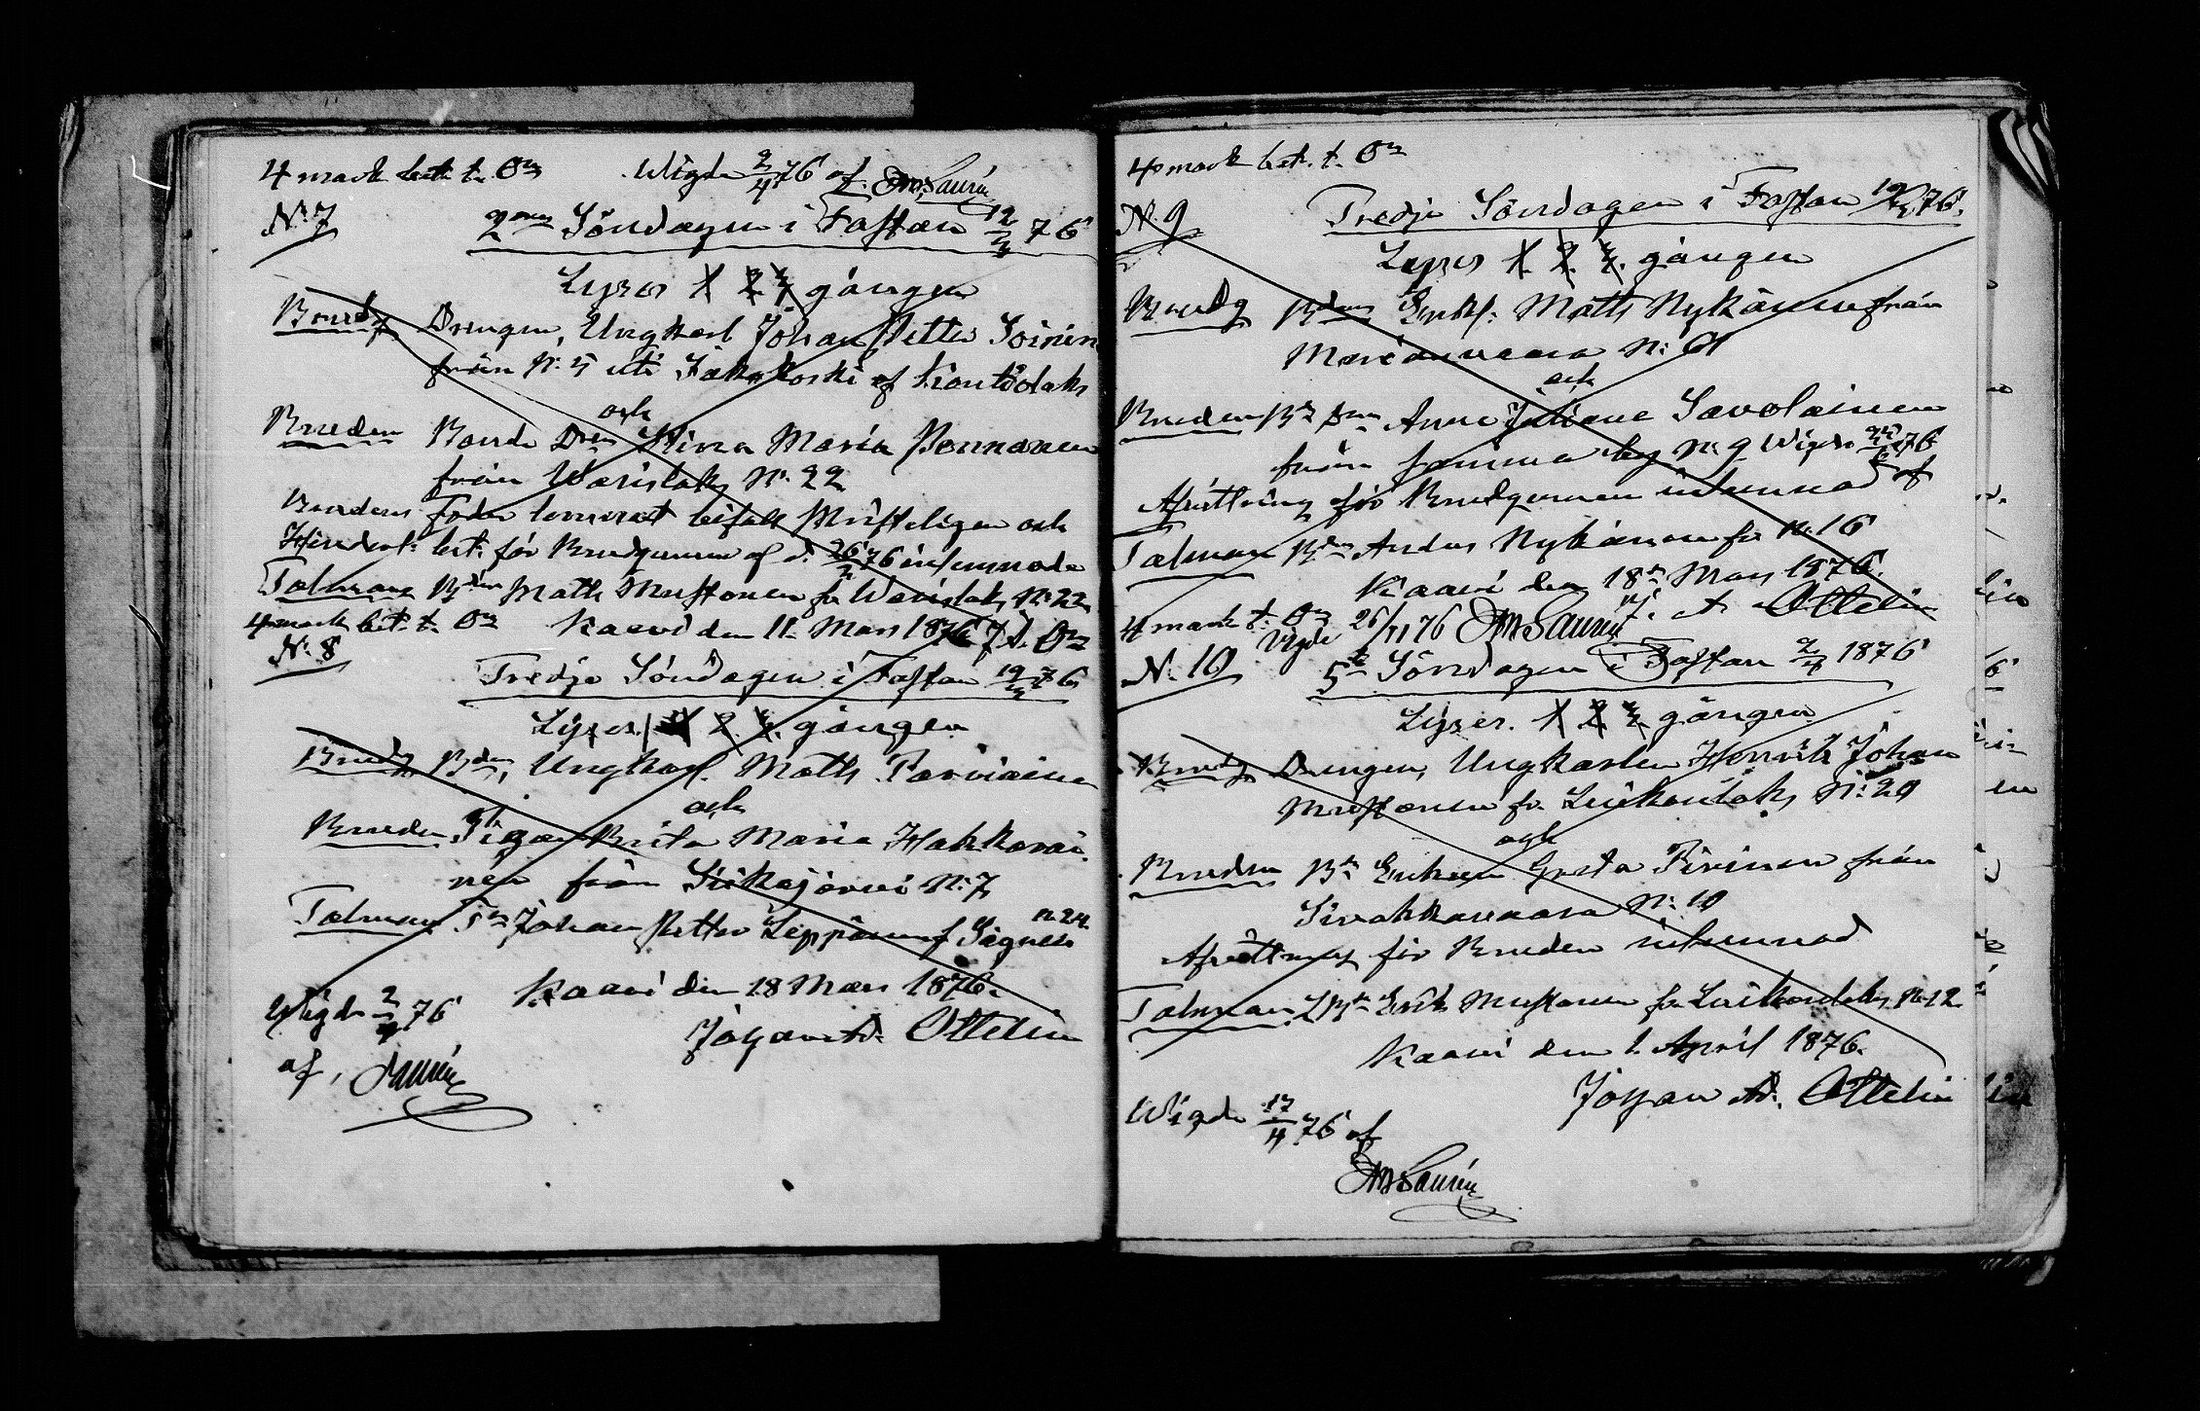 4 mark bet. t. Om Wigde 2/4 76 af AWSaurén
N:7 2dra Söndagen i Fastan 12/3 76
Lyses 1 2 3 gången
Brudg. Drengen, Ungkarl Johan Petter Soininen
från N: 5 uti Jakokoski af Kontiolaks
och
Bruden Bonde Dren Stina Maria Pennanen
från Warislaks N: 22
Brudens fader lemnat bifall skrifteligen och
Hinderl: bet: för Brudgummen af d. 26/2 76 inlemnade
Talman Bden Math Mustonen fr Warislaks N: 22
4 mark bet. t. Om Kaavi den 11 Mars 1876 J. A. Om
N: 8
Tredje Söndagen i Fastan 19/3 76
Lyses 1 2 3 gången
Brudg Bden, Ungkarl. Math Parviainen
och
Bruden Pigan Brita Maria Hakkarai-
nen från Siikajärvi N: 7
Talman Tn Johan Petter Leppänen f Sägneb N 24
Kaavi den 18 Mars 1876.
Wigde 2/4 76
Johan Ad. Ottelin
af, Saurén
4 mark bet. t. Om
N. 9 Tredje Söndagen i Fastan 19/3 76.
Lyses 1. 2. 3. gången
Brudg Bdens Enkl: Math Nykänen från
Marianvaara N: 9
och
Bruden Bd Dren Anna Juliana Savolainen
från samma by N: 9 Wigde 76
Afvittring för Brudgummen inlemnad af
Talman Bden Anders Nykänen fr N. 16
Kaavi den 18de Mars 1876.
J. A Ottelin
4 mark t. Om Vigde 26/11 76 AWSaurén
N: 10 5te Söndagen i Fastan 2/4 1876
Lyses. 1 2 3 gången
Brudg Drengen, Ungkarlen Henrik Johan
Mustonen fr. Luikonlaks N: 29
och
Bruden Bde Enkan Greta Piirinen från
Sivakkavaara N: 10
Afvittring för Bruden inlemnad
Talman Bn Erik Mustonen fr Luikonlaks N: 12
Kaavi den 1. April 1876.
Johan Ad. Ottelin
Wigde 17/4 76 af
AWSaurén